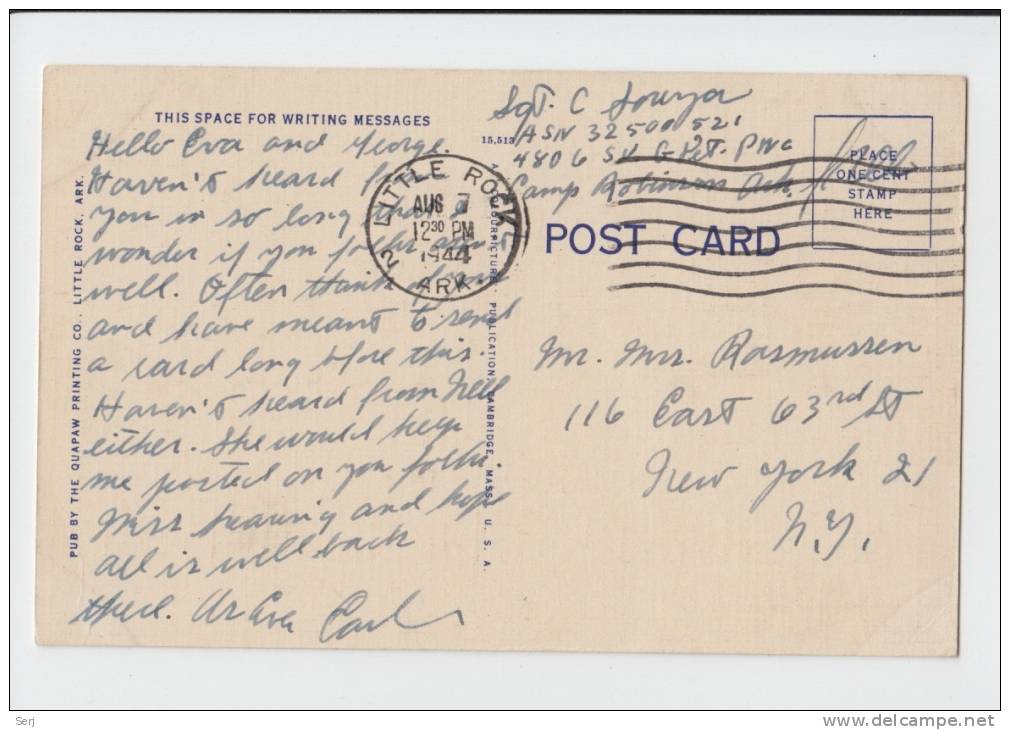 THIS SPACE FOR WRITING MESSAGES
Hello Eva and George.
Haven't heard from
you in so long that I
wonder if you folks are
well. Often think of you
and have meant to send
a card long before this.
Haven't heard from Nell
either. She would keep
me posted on you folks
Miss hearing and hope
all is well back
there. As Ever Carl
PUB BY THE QUAPAW PRINTING CO., LITTLE ROCK, ARK.
15,513
PUBLICATION, CAMBRIDGE, MASS., U. S. A.
LITTLE ROCK
2
AUG 7
12 30 PM
1944
ARK.
Sgt. C
ASN 32500521
4806 SU G Det. PWC
Camp Robinson Ark.
PLACE
ONE CENT
STAMP
HERE
POST CARD
Mr. Mrs. Rasmussen
116 East 63rd St
New York 21
N.Y.
Serj
www.delcampe.net